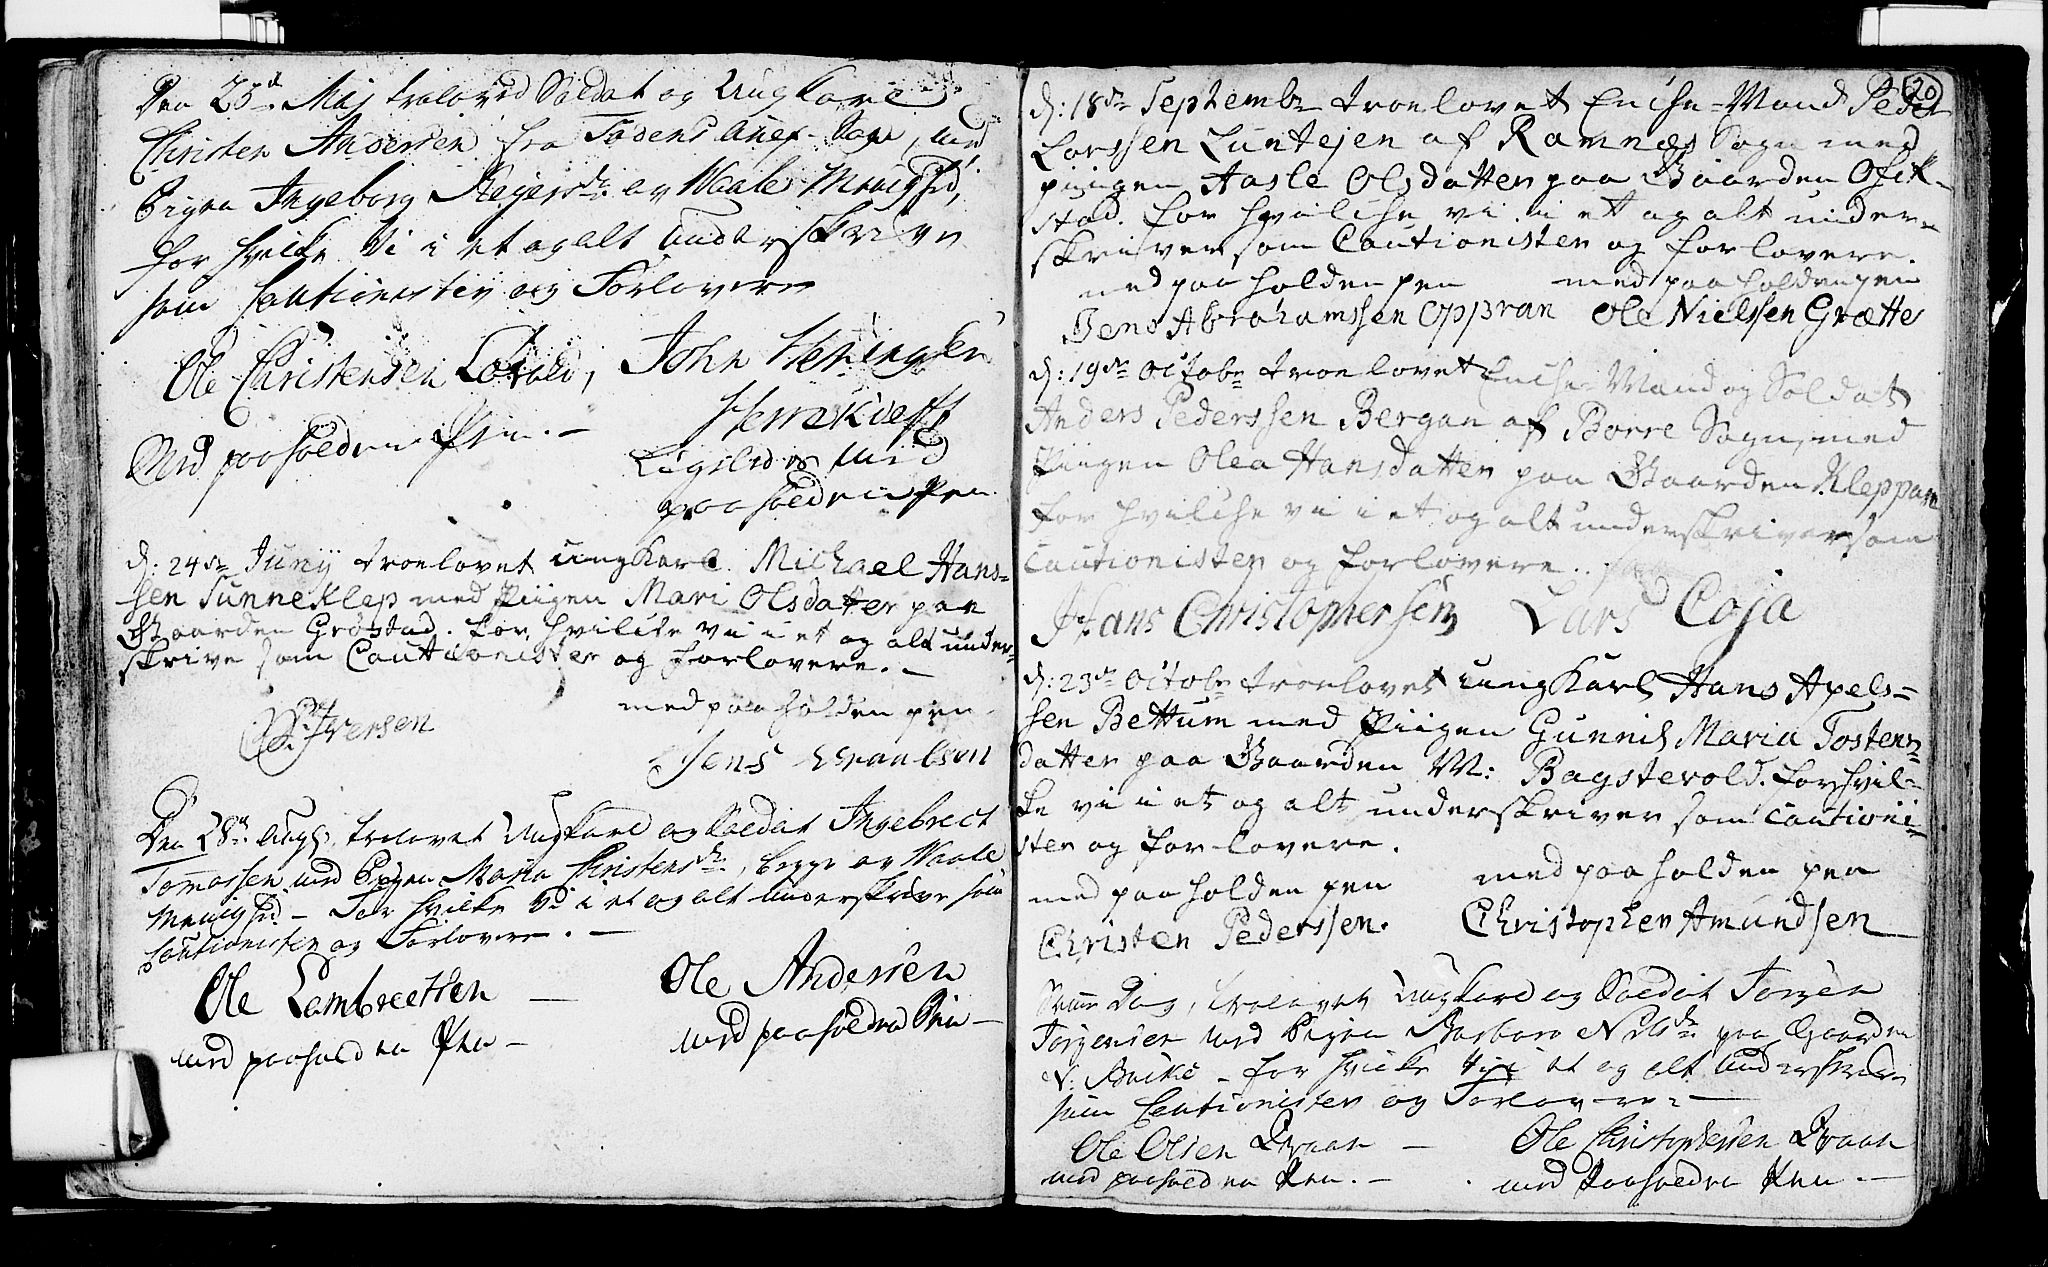 Den 25de Maj troloved Soldat og Ungkarl
Christen Andersen fra Sogn, med
Pigen Ingeborg af Waale Menighed,
for hvilke Vi i et og alt underskriver
som Cautionister og Forlovere
Ole Christensen John Heningsen
Med paaholden Pen.-
Ligeledes med
paaholden Pen.
d: 24de Junij troelovet ungkarl Michael Hans-
sen Sunneklep med Piigen Mari Olsdatter paa
Gaarden Grøstad. for hvilcke vi i et og alt under-
skrive som Cautionister og forlovere.-
med paaholden pen.
Iversen
Jens
Den 28de Augs: trolovet Ungkarl og Soldat Ingebrect
Tomassen med Pigen Maria Christensdr, begge av Waale
Menighed - For hvilke Vi i et og alt underskriver som
Cautionister og Forlovere.-
Ole Lambrectsen - Ole Andersen
med paaholden Pen - med paaholden Pen -
20
d: 18de Septembr troelovet Encke-Mand Peder
Larssen Luntejen af Ramnæs Sogn med
piigen Aasle Olsdatter paa Gaarden
stad. for hvilcke vi i et og alt under-
skriver som Cautionister og forlovere.
med paaholden pen med paaholden pen
Jens Abrahamssen Oppran Ole Nielssen Grætte
d: 19de Octobr troelovet Encke-Mand og Soldat
Anders Pederssen Bergan af Borre Sogn, med
Piigen Olea Hansdatter paa Gaarden Kleppan
for hvilcke vi i et og alt underskriver som
Cautionister og forlovere.
Hans Christophersen Lars Coja
d: 23de Octobr troelovet ungkarl Hans Apels-
sen Bettum med Piigen Gunnil Maria Tostens-
datter paa Gaarden M: Bagstevold. for hvil-
ke vi i et og alt underskriver som Cautioni-
ster og forlovere.
med paaholden pen med paaholden pen
Christen Pederssen. Christopher Amundsen
Samme Dag, trolovet Ungkarl og Soldat Jørgen
Jørgensen med Pigen Barbara Nilsdr paa Gaarden
N: - for hvilke Vi i et og alt underskriver
som Cautionister og Forlovere.-
Ole Olsen - Ole Christophersen
med paaholden Pen.- med Paaholden Pen.-